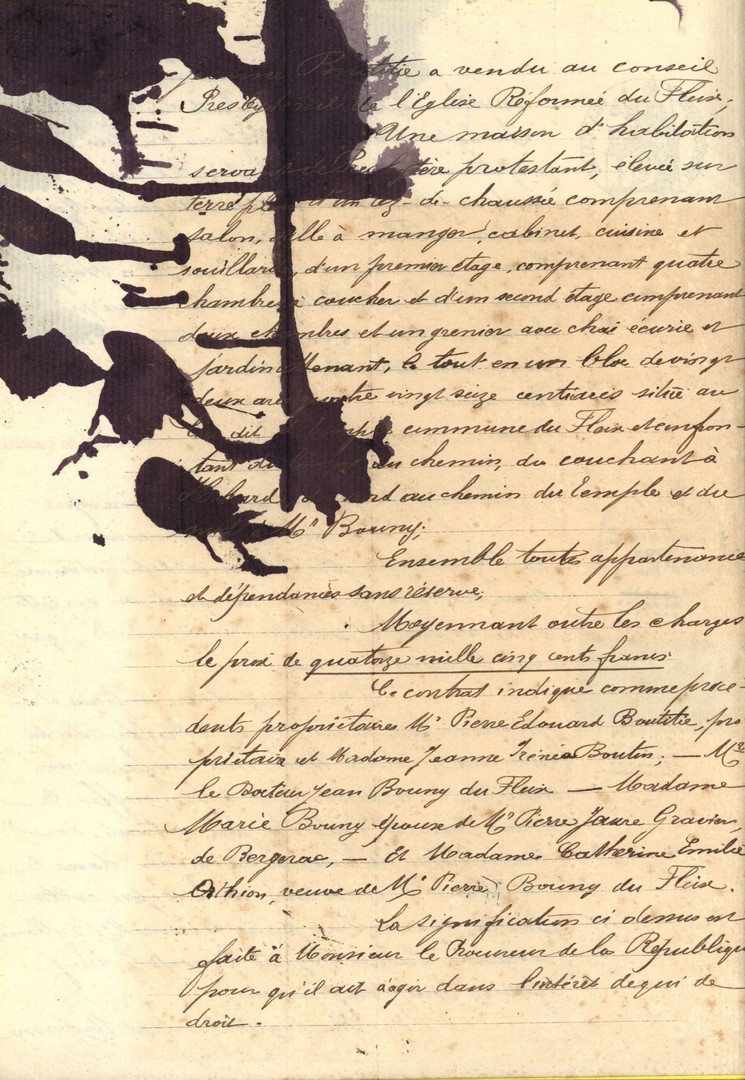 Boutitie a vendu au conseil
Presbytéral de l'Eglise Réformeé du Fleix.
Une maison d'habitation
servant de Presbytère protestant, elevée sur
terre plein d'un rez-de-chaussée comprenant
salon, salle à manger, cabinet, cuisine et
souillarde, d'un premier étage, comprenant quatre
chambres à coucher et d'un second étage comprenant
deux chambres et un grenier avec chai écurie et
jardin attenant, le tout en un bloc de vingt
deux ares quatre vingt seize centiares située au
lieu dit commune du Fleix et confron-
tant du au chemin, du couchant à
au chemin du temple et du
midi à Mr Bouny;
Ensemble toutes appartenances
et dépendances sans réserve;
Moyennant outre les charges
le prix de quatorze mille cinq cents francs.
Ce contrat indique comme précé-
dents propriétaires Mr Pierre Edouard Boutitie, pro
priétaire et Madame Jeanne Irénéa Boutin; — Mr
le Docteur Jean Bouny du Fleix — Madame
Marie Bouny épouse de Mr Pierre Jaure Gravier,
de Bergerac, — Et Madame Catherine Emilie
veuve de Mr Pierre Bouny du Fleix.
La signification ci dessus est
faite à Monsieur le Procureur de la République
pour qu'il ait à agir dans l'intérêt de qui de
droit.